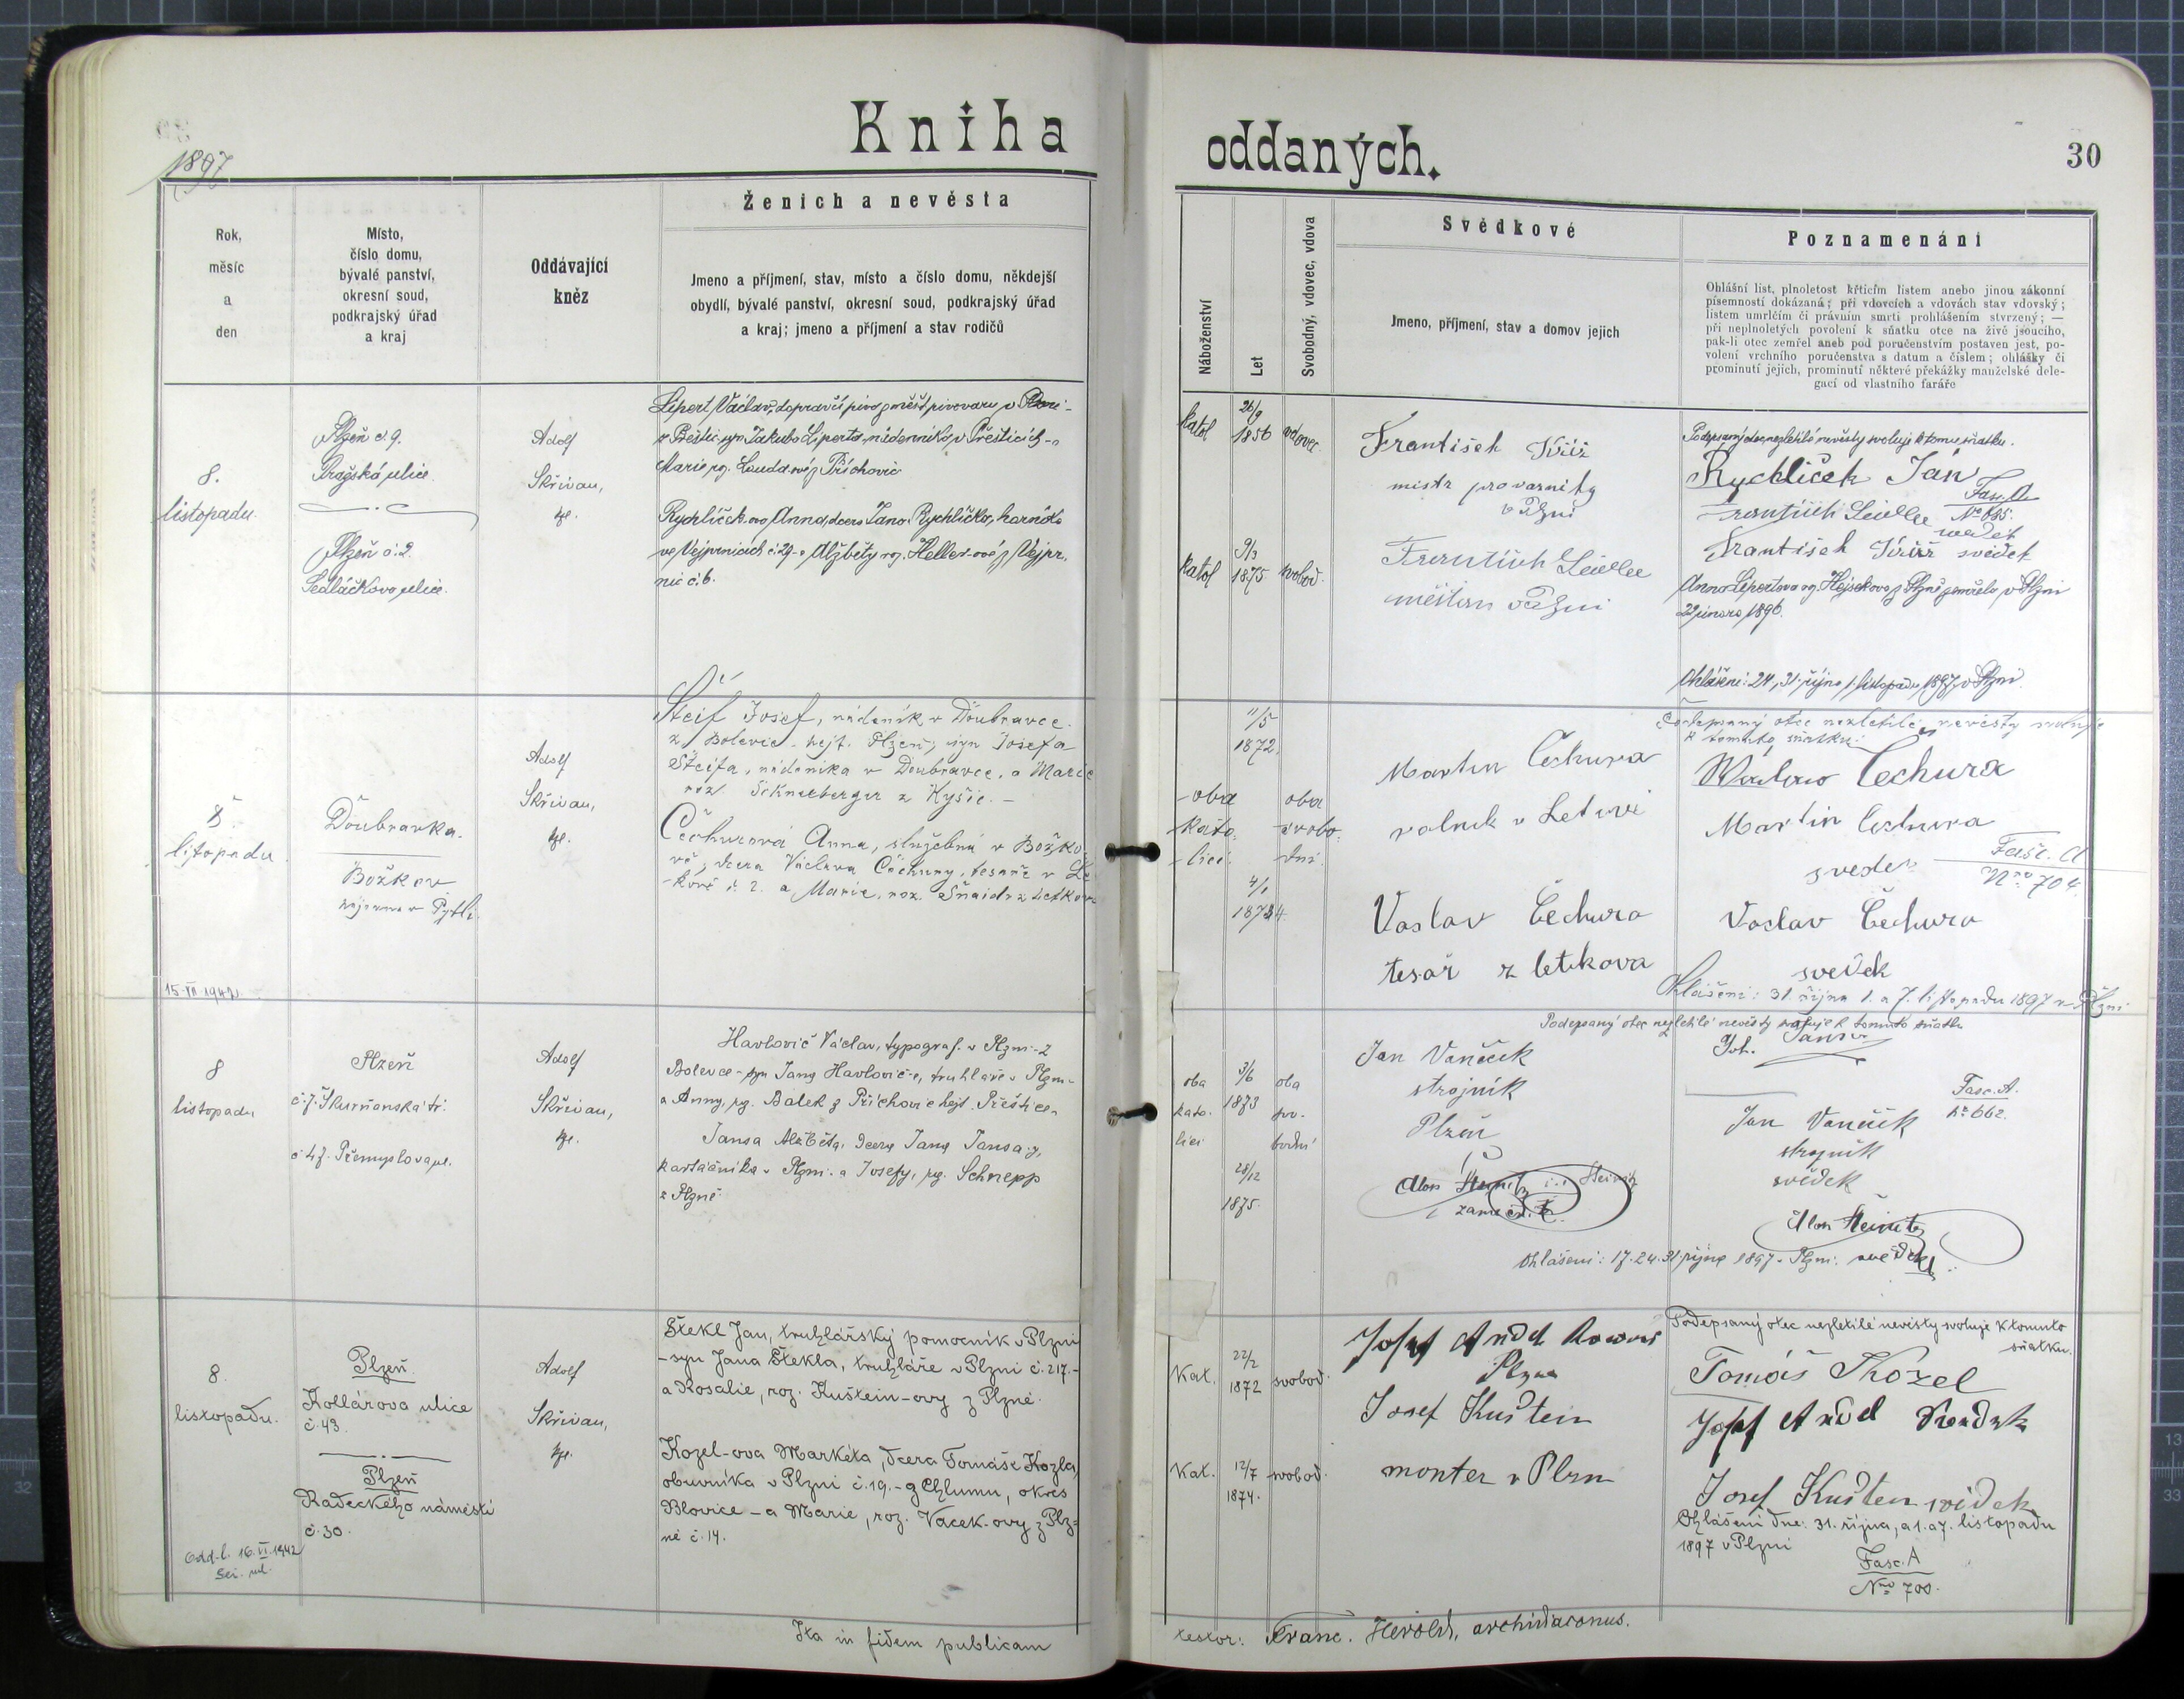 Kniha
oddaných.
30
1897
Rok,
měsíc
a
den
Místo,
číslo domu,
bývalé panství,
okresní soud,
podkrajský úřad
a kraj
Oddávající
kněz
Ženich a nevěsta
Jmeno a příjmení, stav, místo a číslo domu, někdejší
obydlí, bývalé panství, okresní soud, podkrajský úřad
a kraj; jmeno a příjmení a stav rodičů
Náboženství
Let
Svobodný, vdovec, vdova
Svědkové
Jmeno, příjmení, stav a domov jejich
Poznamenání
Ohlášní list, plnoletost křticím listem anebo jinou zákonní
písemností dokázaná; při vdovcích a vdovách stav vdovský;
listem umrlčím či právním smrti prohlášením stvrzený; —
při neplnoletých povolení k sňatku otce na živě jsoucího,
pak-li otec zemřel aneb pod poručenstvím postaven jest, po-
volení vrchního poručenstva s datum a číslem; ohlášky či
prominutí jejich, prominutí některé překážky manželské dele-
gací od vlastního faráře
8.
listopadu.
Plzeň č. 9.
Pražská ulice.
Plzeň č. 2.
Sedláčkova ulice.
Adolf
Skřivan,
kp.
Lipert Václav, dopravčí piva z měšť. pivovaru v Plzni -
syn Jakuba Liperta, nádenníka v Přešticích - a
Marie, roz. Loudа z Příchovic
Rychlíček-ova Anna, dcera Jana Rychlíčka, horníka
ve Vejprnicích č. 29 - a Alžběty roz. Heller-ové z Vejpr-
nic č. 6.
katol
26/9
1856
vdovec.
katol
9/3
1875
svobod.
František Kříž
mistr provaznický
v Plzni
měšťan v Plzni
Podepsaný otec nezletilé nevěsty svoluje k tomu sňatku.
Rychlíček Jan
Fasc. A
No 685.
svědek
František Kříž svědek
Anna Lipertova roz. Hejsekova z Plzně zemřela v Plzni
22 února 1896.
Ohlášení: 24, 31 října, 1 listopadu 1897 v Plzni.
8.
listopadu
15. VII. 1942
Doubravka.
Božkov
Adolf
Skřivan,
kp.
Šteif Josef, nádeník v Doubravce.
z Bolevce, hejt. Plzeň, syn Josefa
Šteifa, nádeníka v Doubravce, a Marie
roz. Schneeberger z Kyšic. -
Čechurová Anna, služebná v Božko-
vě, dcera Václava Čechury, tesaře v Let-
kově č. 2. a Marie, roz. Šnaidr z Letkova
oba
kato-
lici
11/5
1872.
4/1
1874
oba
svobo-
dní.
Martin Čechura
rolník v Letkově
Vaslav Čechura
tesař z letkova
Podepsaný otec nezletilé nevěsty svoluje
k tomuto sňatku:
Václav Čechura
Martin Čechura
svedek
Fasc. A
Nro 704.
Vaslav Čechura
svedek
Ohlášení: 31. října 1. a 7. listopadu 1897 v Plzni
8
listopadu
Plzeň
č. 7. Skurňanská tř.
č. 47. Přemyslova ul.
Adolf
Skřivan,
kp.
Havlovič Václav, typograf v Plzni - z
Bolevce - syn Jana Havloviče, truhláře v Plzni -
a Anny, roz. Balek z Příchovic hejt. Přeštice.
Jansa Alžběta, dcera Jana Jansa,
kartáčníka v Plzni a Josefy, roz. Schnepp
z Plzně.
oba
kato-
lici
3/6
1873
28/12
1875.
oba
svo-
bodní
Jan Vaněček
strojník
Plzeň
Alois Steinitz
Podepsaný otec nezletilé nevěsty svoluje k tomuto sňatku
Joh. Jansa
Fasc. A.
No 662.
Jan Vaněček
strojník
svědek
Alois Steinitz
svědek
Ohlášení: 17. 24. 31 října 1897 v Plzni.
8.
listopadu.
Odd. l. 16. VI. 1942
Plzeň.
Kollárova ulice
č. 43.
Plzeň
Radeckého náměstí
č. 30.
Adolf
Skřivan,
kp.
Štekl Jan, truhlářský pomocník v Plzni
- syn Jana Štekla, truhláře v Plzni č. 217. -
a Rosalie, roz. Kuštein-ovy z Plzně.
Kozel-ova Markéta, dcera Tomáše Kozla,
obuvníka v Plzni č. 19. - z Chlumu, okres
Blovice - a Marie, roz. Vacek-ovy z Plz-
ně č. 14.
Kat.
22/2
1872
svobod.
Kat.
12/7
1874.
svobod.
Josef Anděl
Plzeň
Josef Kuštein
monter v Plzni
Podepsaný otec nezletilé nevěsty svoluje k tomuto
sňatku.
Tomáš Kozel
Josef Anděl Svědek
Josef Kuštein svědek
Ohlášení dne: 31. října, a 1. a 7. listopadu
1897 v Plzni
Fasc. A
Nro 700.
Ita in fidem publicam
testor: Franc. Herold, archidiaconus.